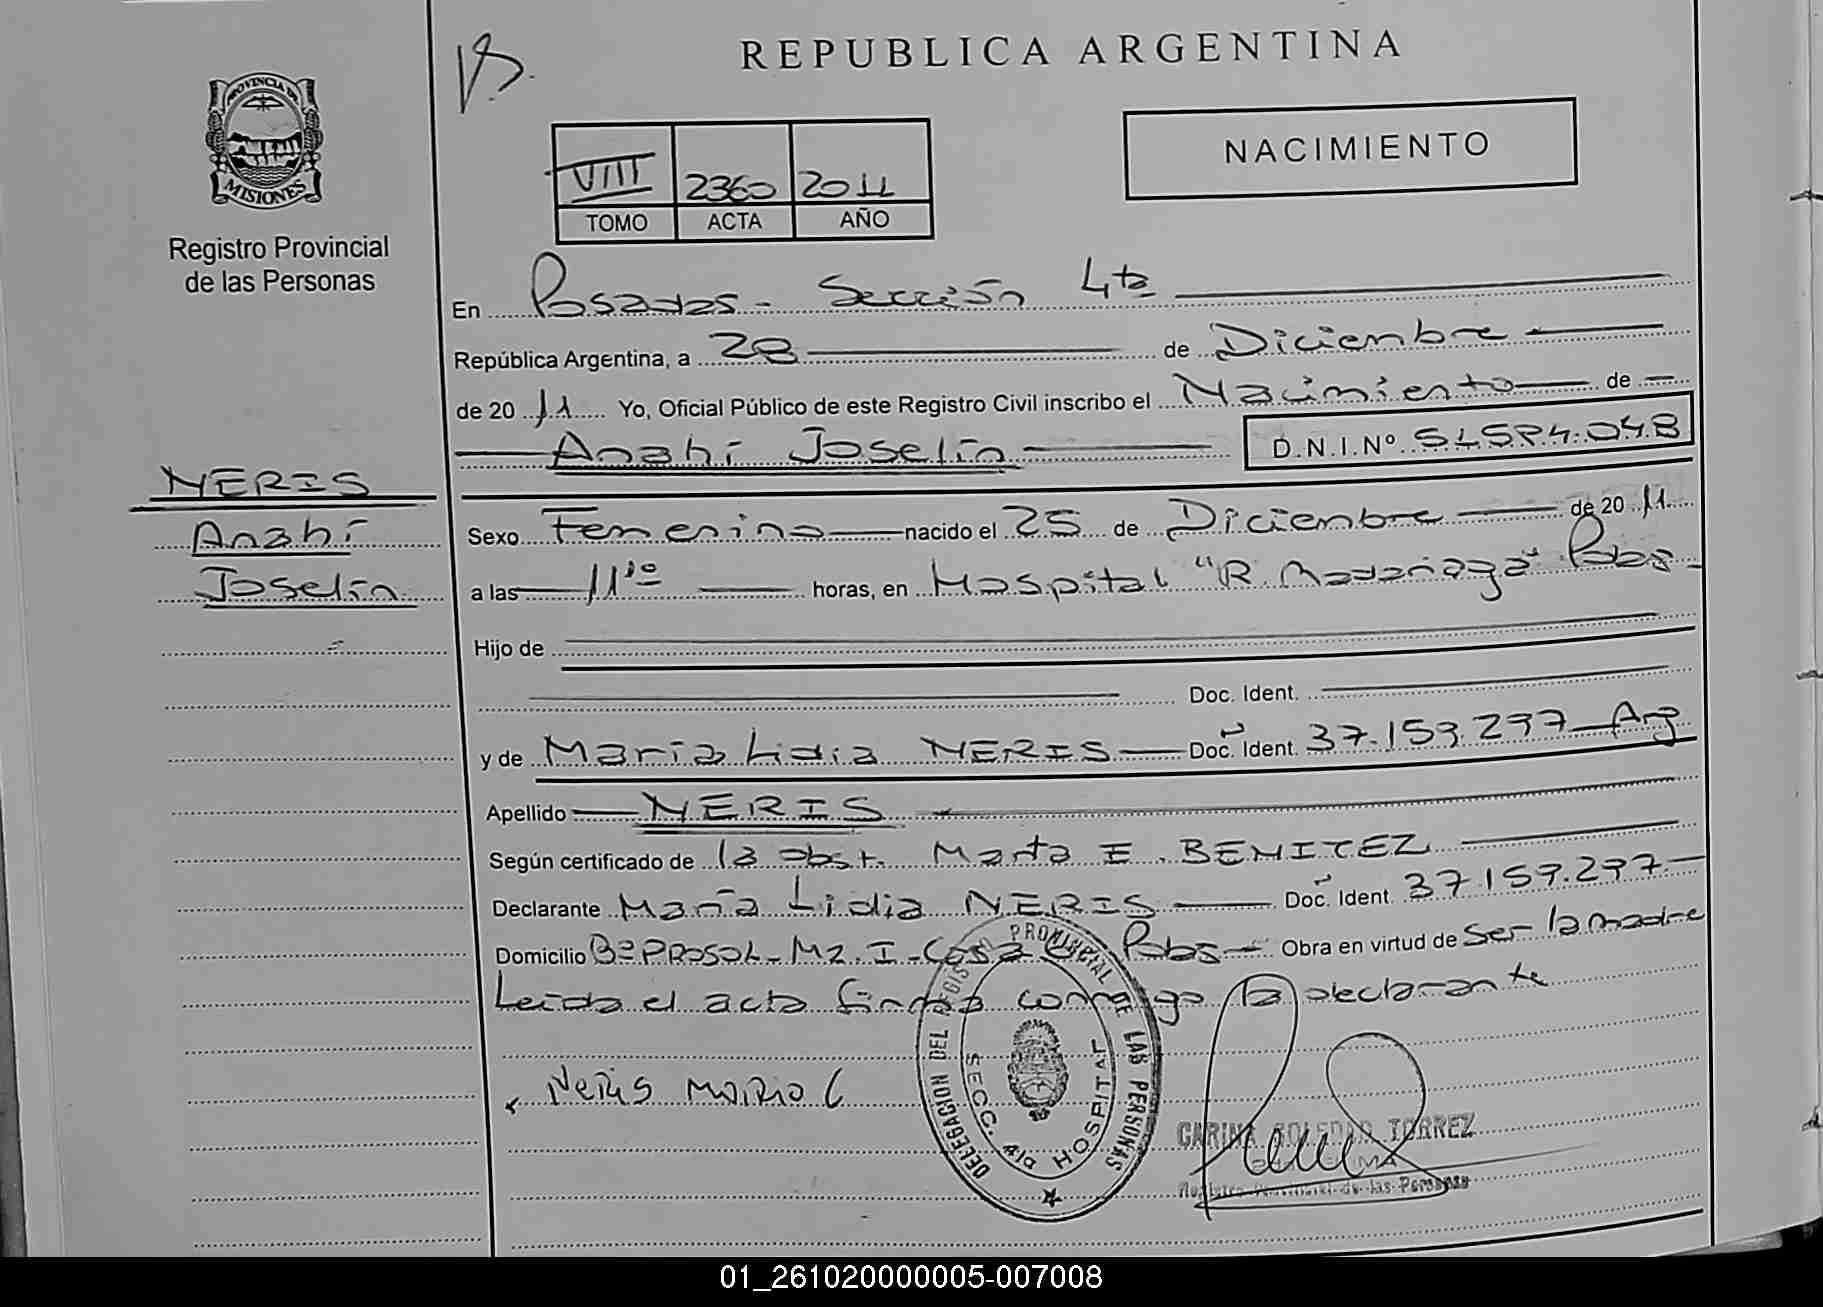 REPUBLICA ARGENTINA
PROVINCIA DE
MISIONES
Registro Provincial
de las Personas
VIII 2360 2011
TOMO ACTA AÑO
NACIMIENTO
En Posadas - Sección 4ta
República Argentina, a 28 de Diciembre
de 20 11 Yo, Oficial Público de este Registro Civil inscribo el Nacimiento de
Anahí Joselín D.N.I.Nº
NERIS
Anahí
Joselín
Sexo Femenino nacido el 25 de Diciembre de 20 11
a las 11:10 horas, en Hospital "R. Madariaga" Pdas -
Hijo de
Doc. Ident.
y de María Lidia NERIS Doc. Ident. 37.159.297 Arg
Apellido NERIS
Según certificado de la obst. Marta E. BENITEZ
Declarante María Lidia NERIS Doc. Ident. 37.159.297
Domicilio Bº PROSOL - Mz. I - Casa Pdas Obra en virtud de ser la madre
Leída el acta firma conmigo la declarante
Neris Maria L
DELEGACION DEL REGISTRO PROVINCIAL DE LAS PERSONAS
SECC. 4ta HOSPITAL
CARINA SOLEDAD TORREZ
Registro Provincial de las Personas
01_261020000005-007008